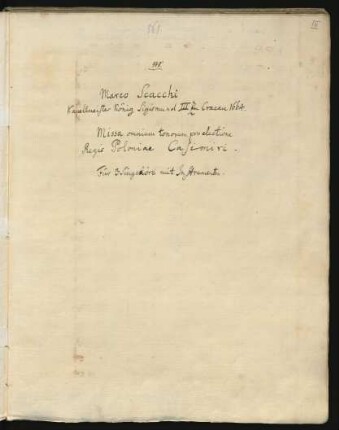 161
III
Marco Scacchi
Kapellmeister König Sigismund III zu Cracau 1664.
Missa omnium tonorum pro electione
Regis Poloniae Casemiri.
Für 3 Singchöre mit Instrumenten.